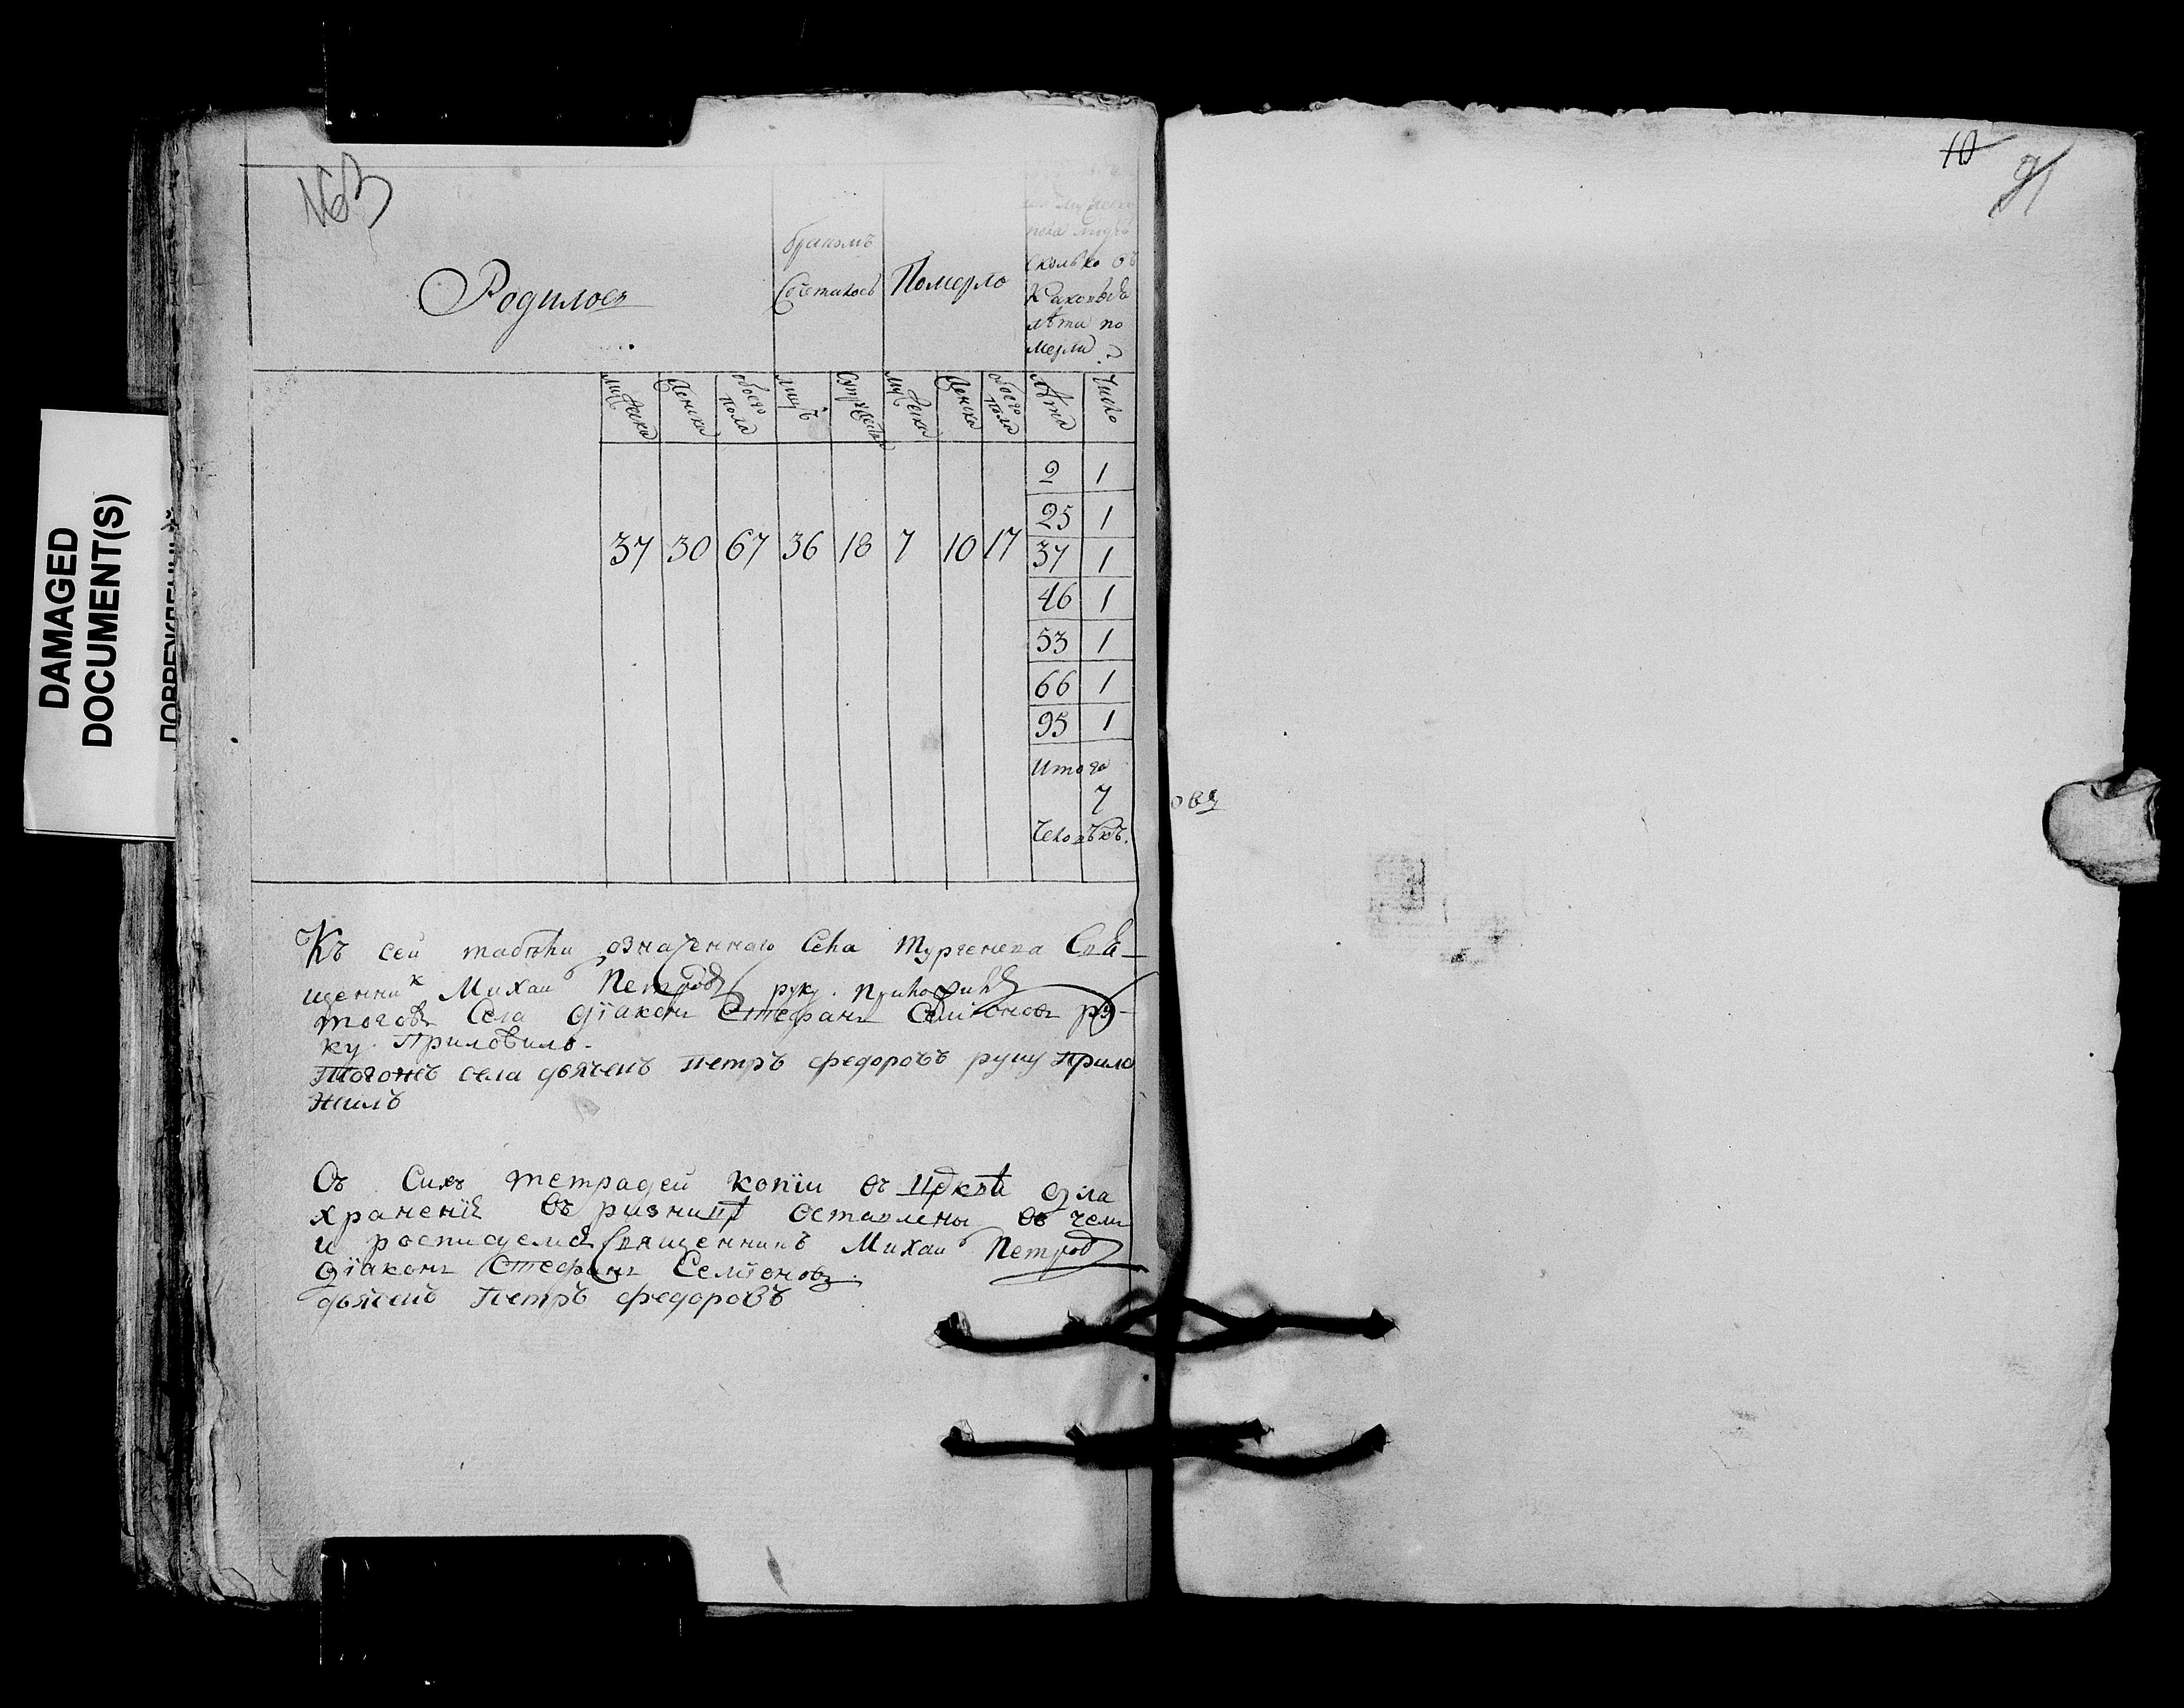 DAMAGED
DOCUMENT(S)
163
Родилося
бракомъ
Сочеталось
Померло
сколько отъ
лѣта по
мерли
мужеска
женска
обоего
пола
лицъ
супружествъ
мужеска
женска
обоего
пола
Лѣта
Число
37 30 67 36 18 7 10 17
2 1
25 1
37 1
46 1
53 1
66 1
95 1
Итого
7
Человѣкъ.
Къ сей табели означеннаго Села Тургенева Свя-
щенник Михаил Петровъ руку приложилъ
тогожъ Села дїаконъ Стефанъ Семїоновъ ру-
ку приложилъ.
Тогожъ села дьячекъ Петръ Федоровъ руку прило
жилъ
Съ Сихъ тетрадей копїи въ црквѣ для
хранения въ ризницѣ оставлены въ чемъ
и росписуемся Священникъ Михаил Петров
дїаконъ Стефанъ Семїоновъ.
дьячекъ Петръ Федоровъ
10
91